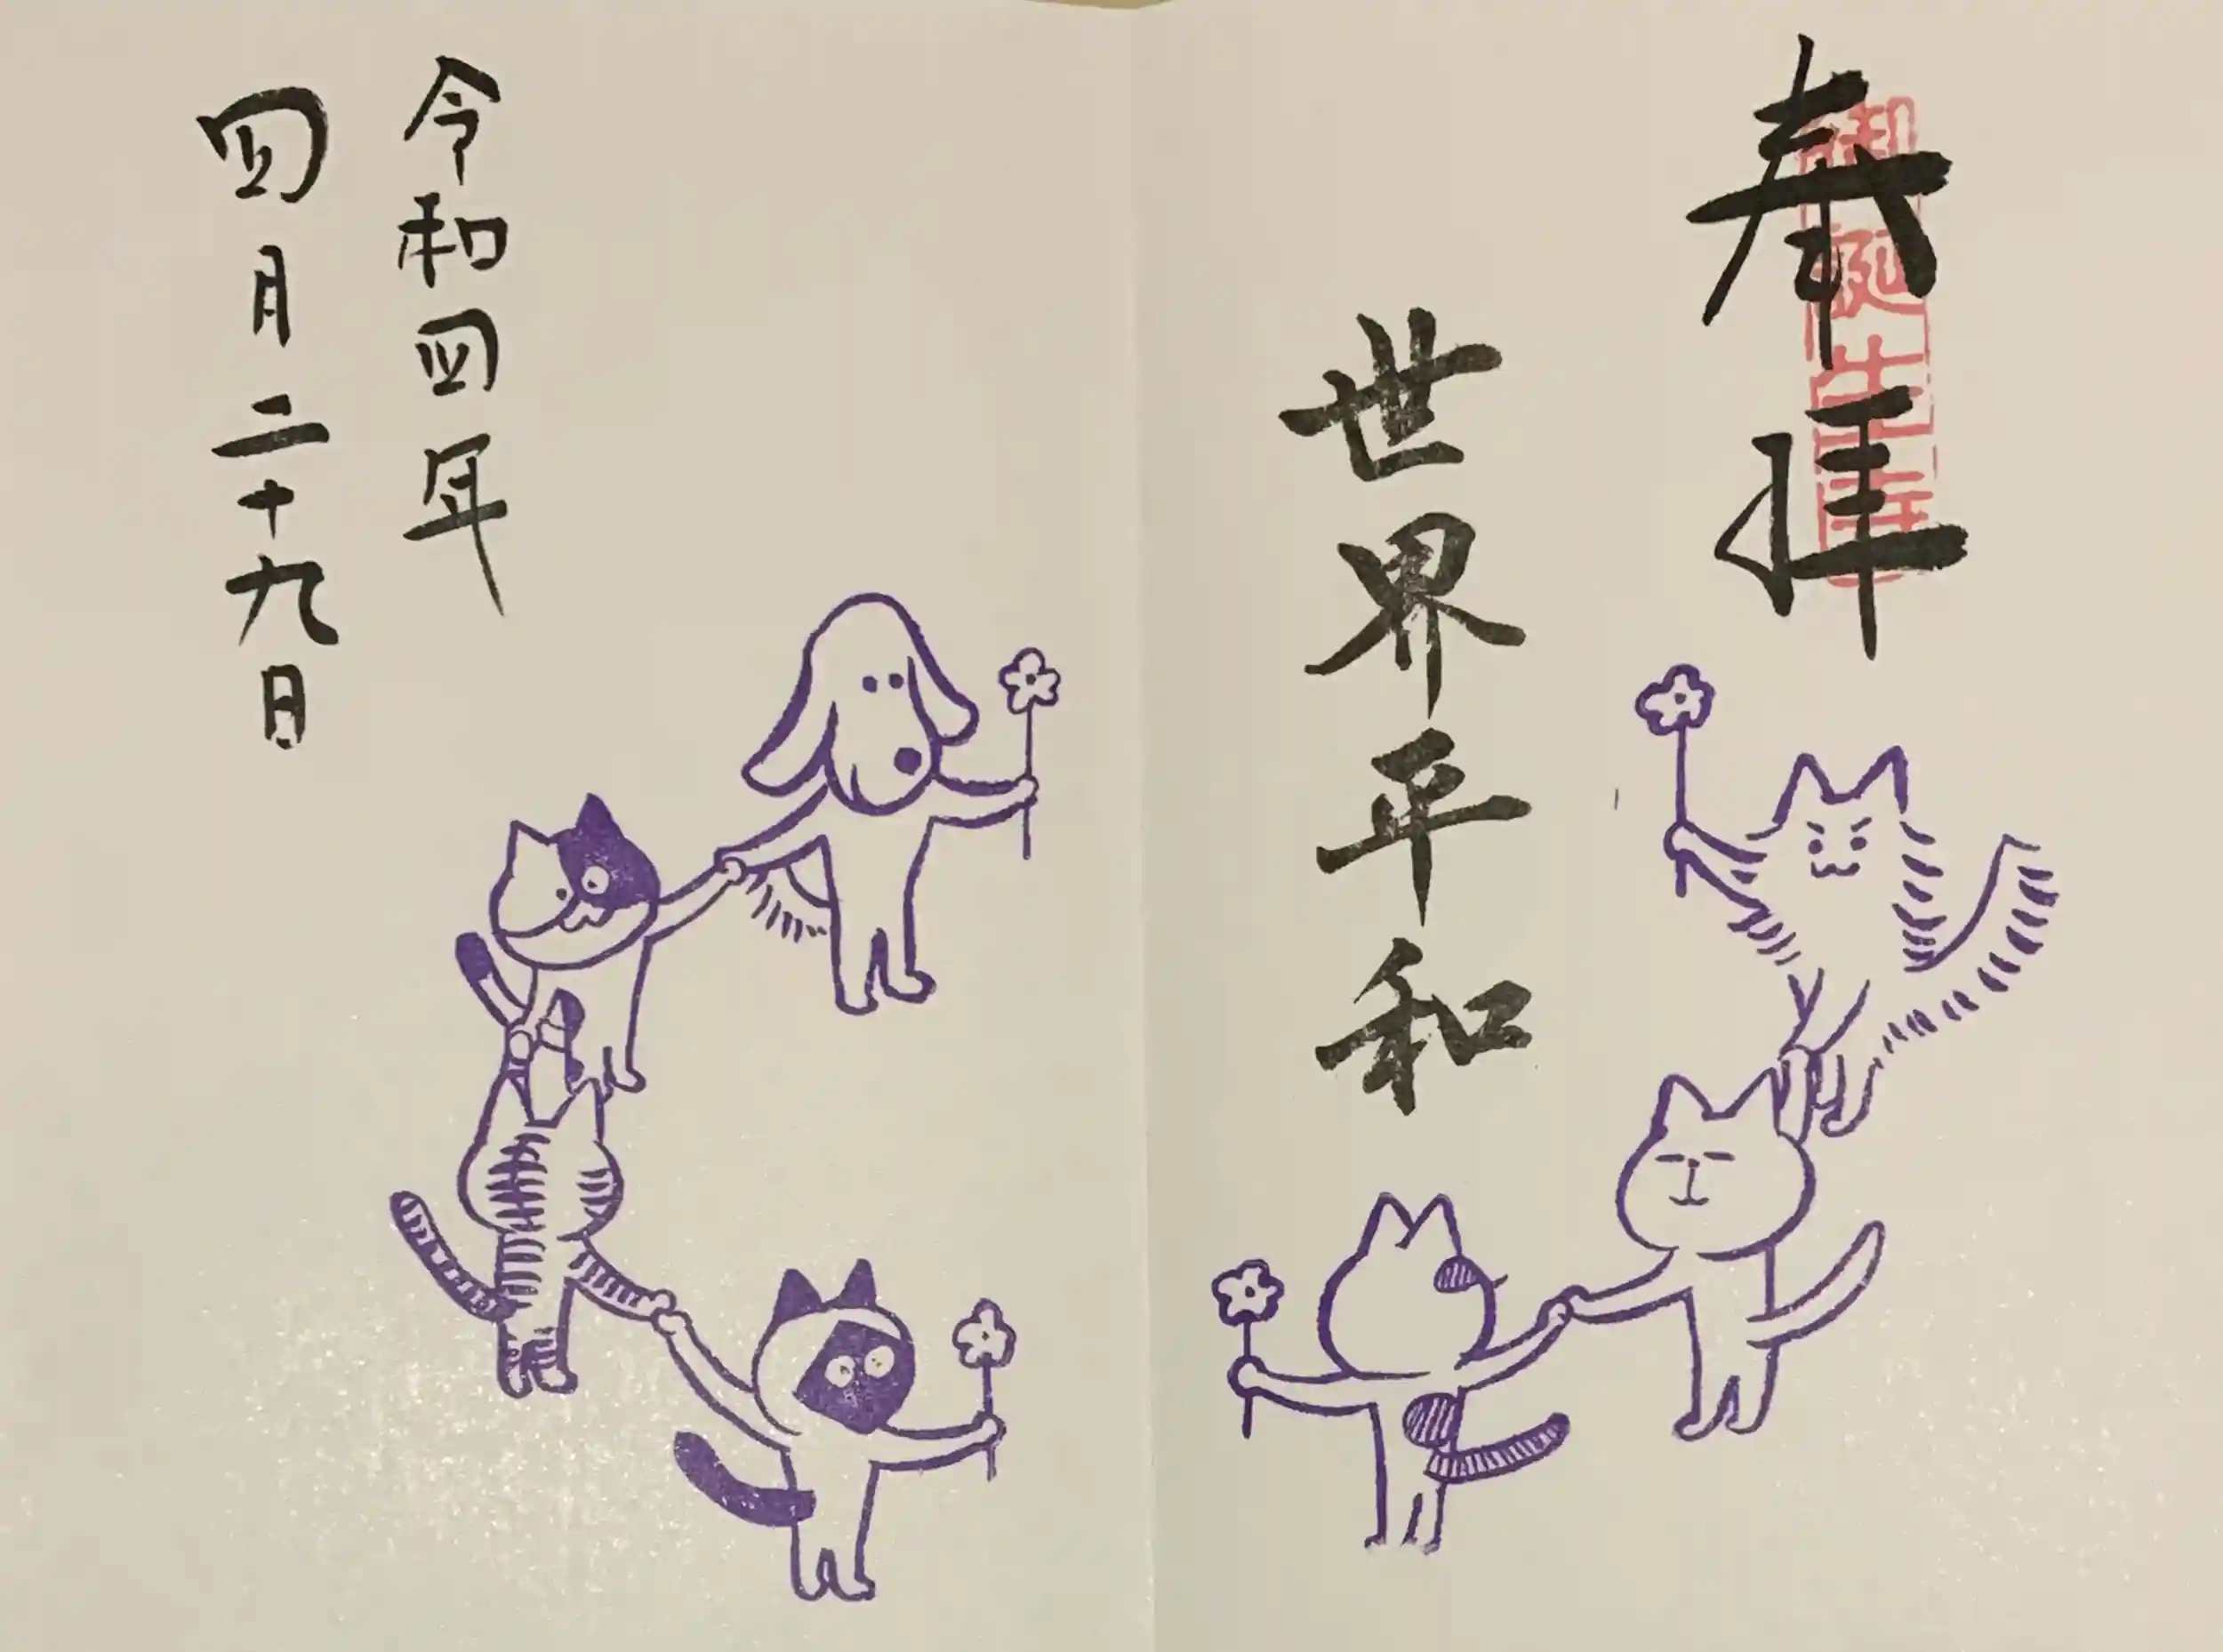 奉拝
御誕生寺
世界平和
令和四年
四月二十九日